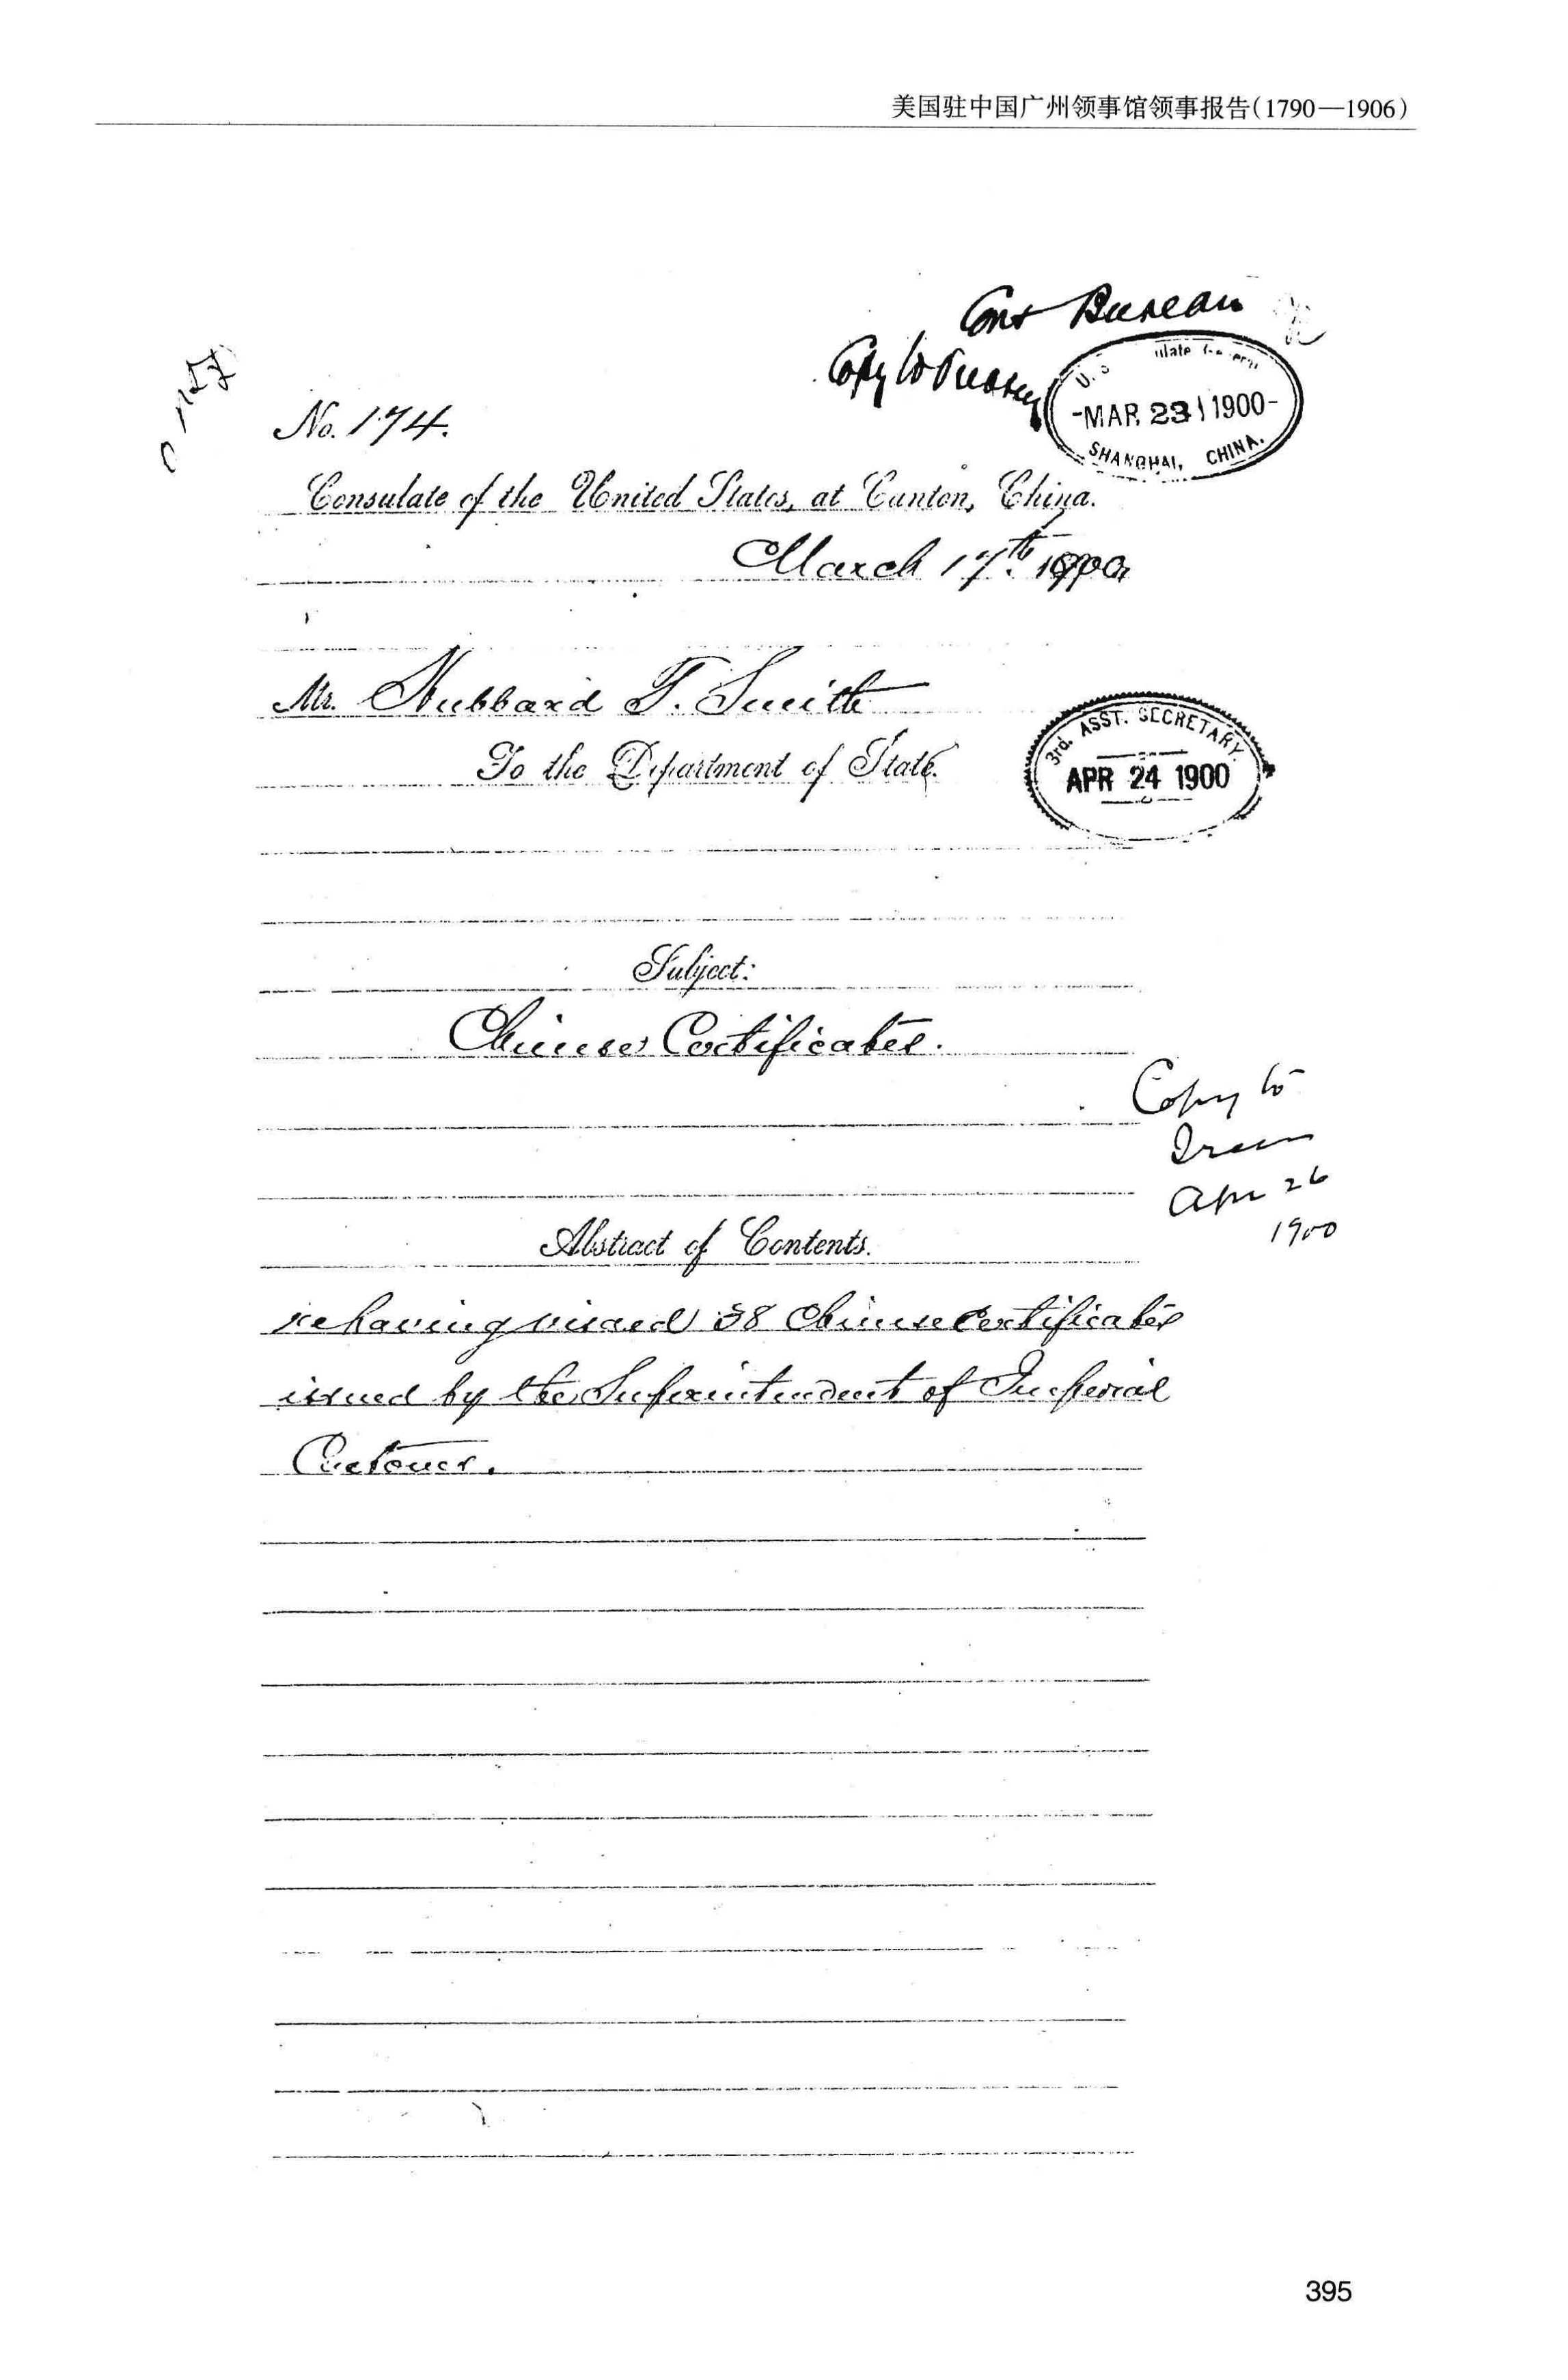 美国驻中国广州领事馆领事报告(1790—1906)
Cons Bureau
Copy to Treasury
U.S
MAR 23 1900
SHANGHAI, CHINA.
No. 174.
Consulate of the United States, at Canton, China.
March 17th. 1900,
Mr. Hubbard T. Smith
To the Department of State.
3rd. ASST. SECRETARY.
APR 24 1900
Subject:
Chinese Certificates.
Copy to
Treas
Apr 26
1900
Abstract of Contents.
re having visaed 38 Chinese Certificates
issued by the Superintendent of Imperial
Customs.
395